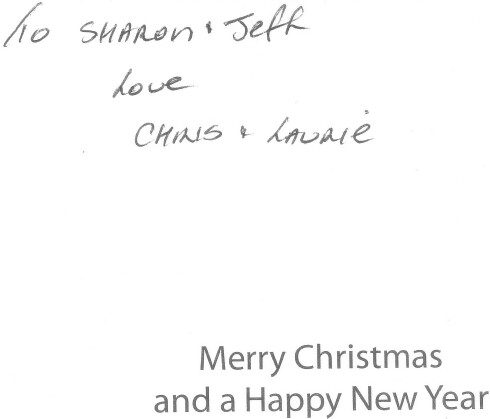 To SHARON & Jeff
Love
CHRIS & LAURIE
Merry Christmas
and a Happy New Year